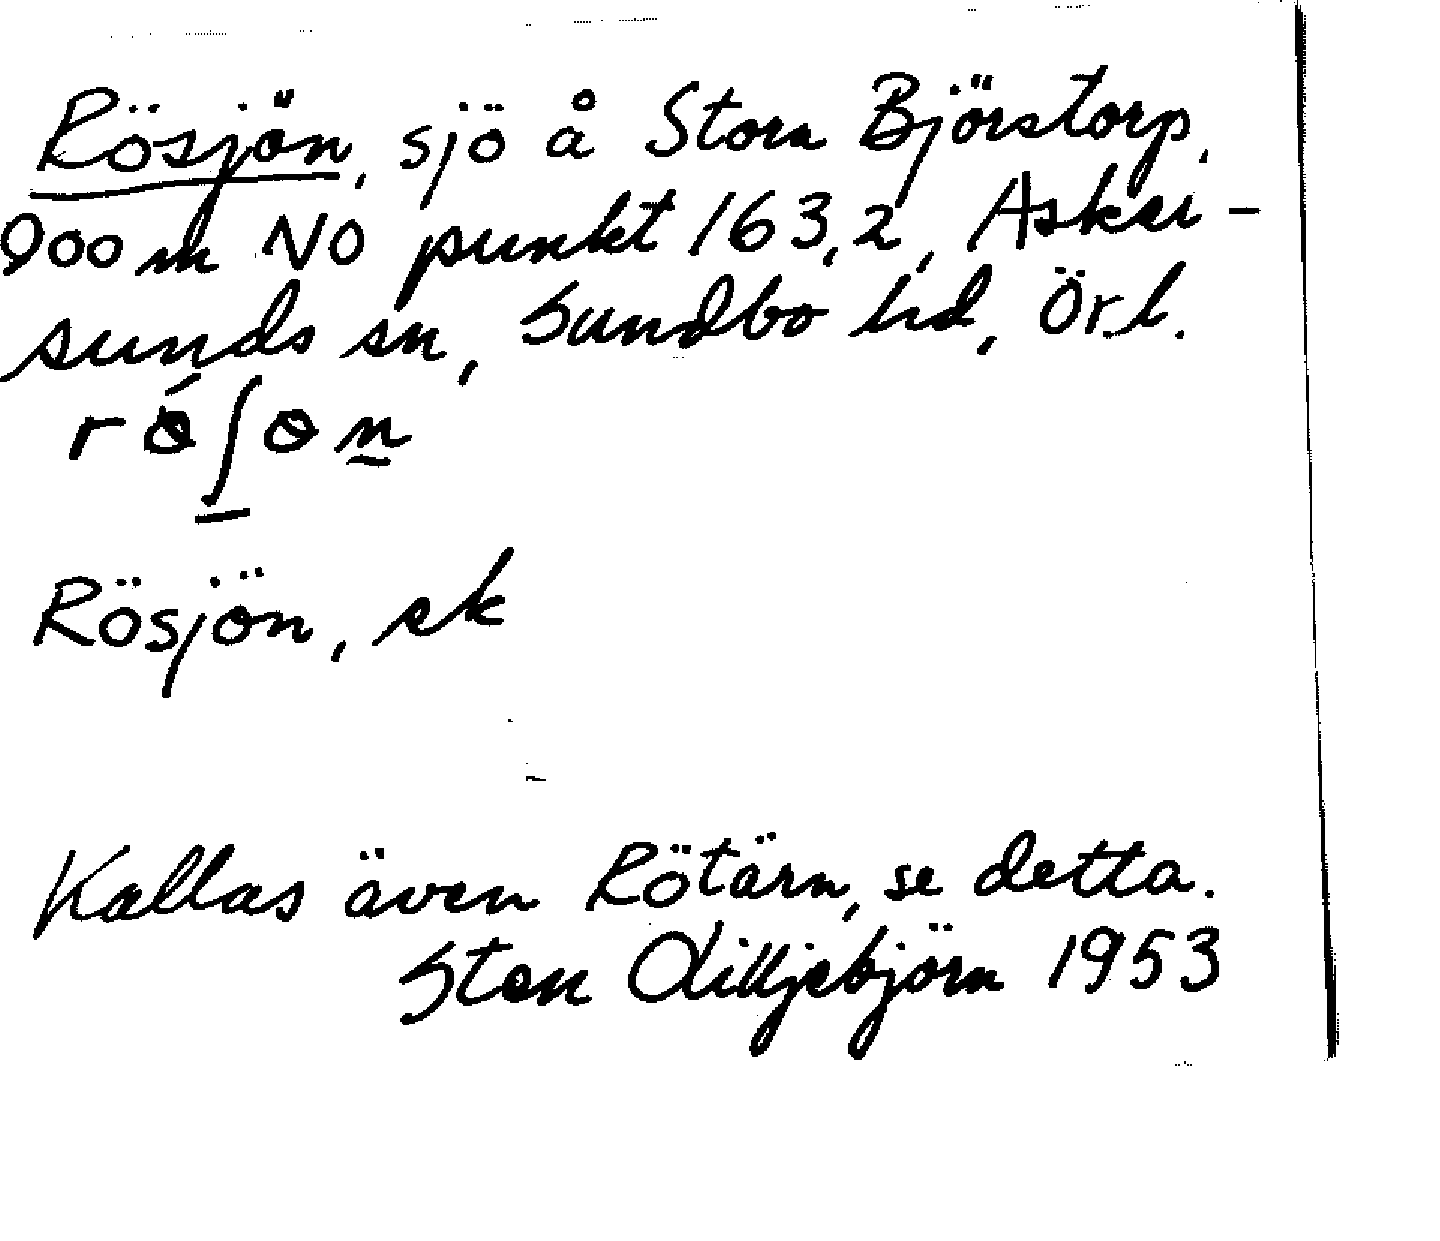 Rösjön, sjö å Stora Björstorp,
900 m NO punkt 163,2, Asker-
sunds sn, Sundbo hd, Örl.
rɵ́ʃɵn
Rösjön, ek
Kallas även Rötärn, se detta.
Sten Lilljebjörn 1953